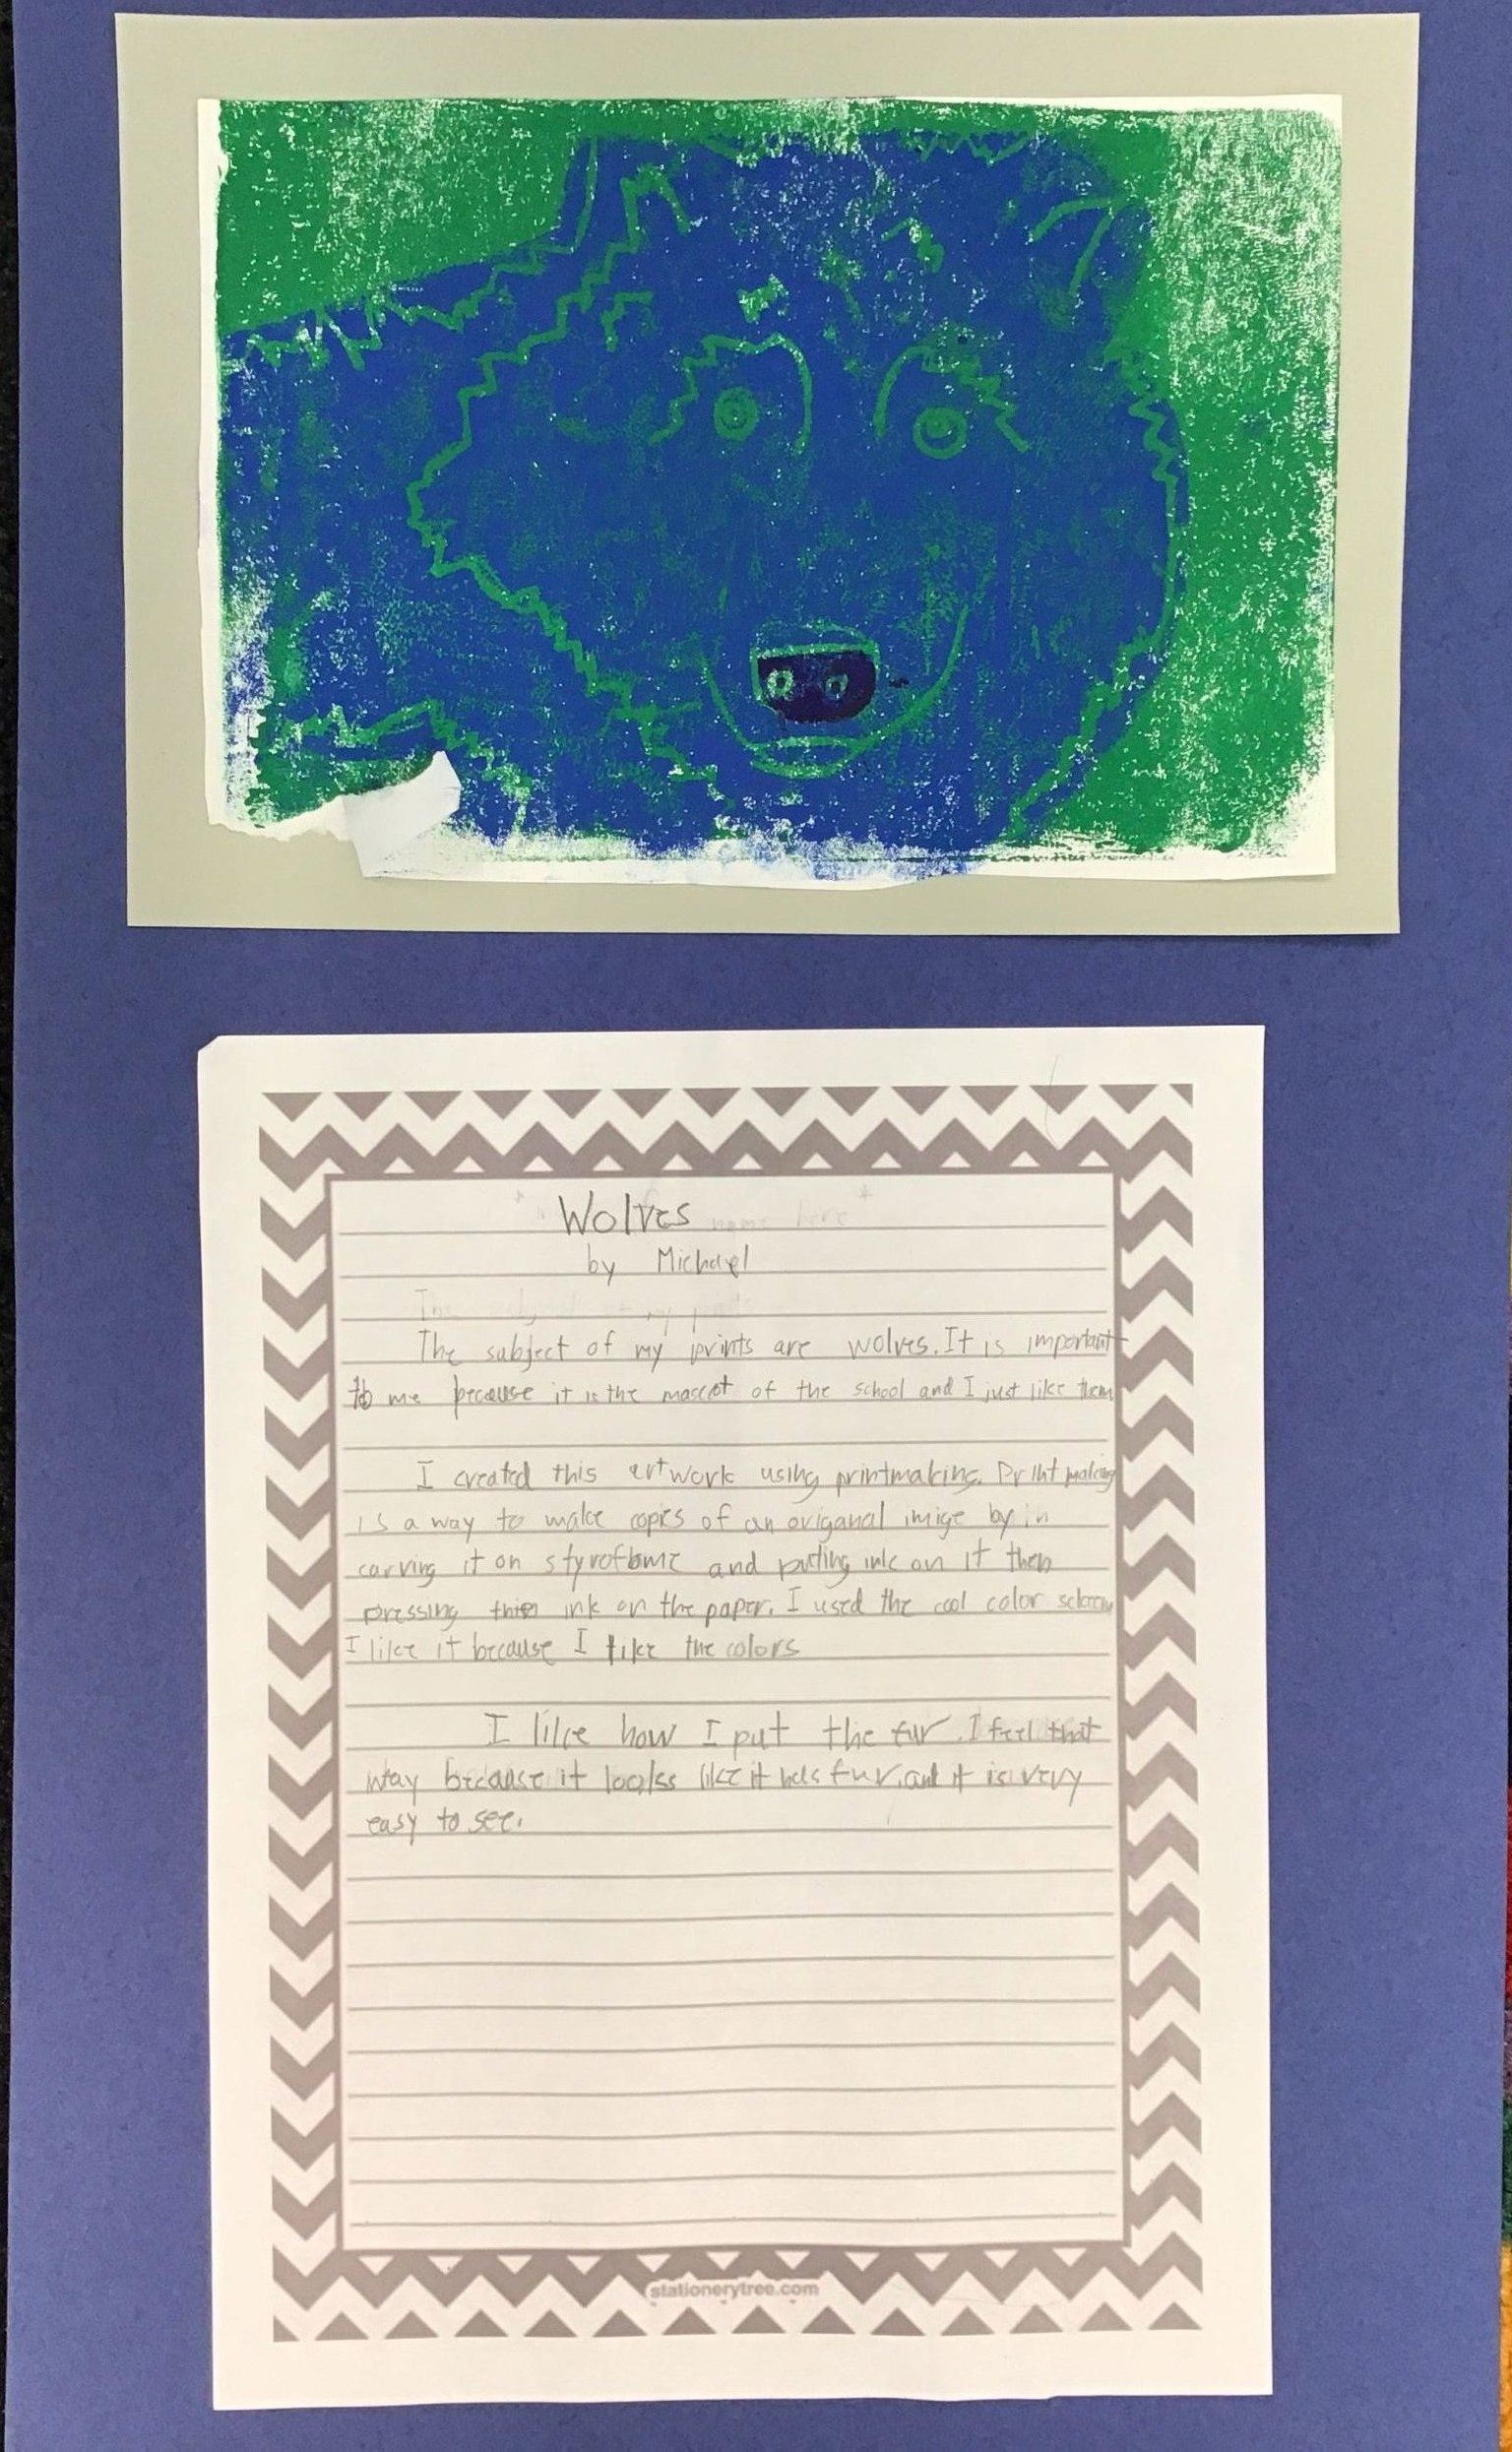 Wolves
by Michael
The subject of my prints are wolves. It is important
to me because it is the mascot of the school and I just like them
I created this artwork using printmaking. Printmaking
is a way to make copies of an origanal imige by in
carving it on styrofome and puting ink on it then
pressing the ink on the paper. I used the cool color
I like it because I like the colors
I like how I put the fur. I feel that
way because it looks like it has fur, and it is very
easy to see.
stationerytree.com